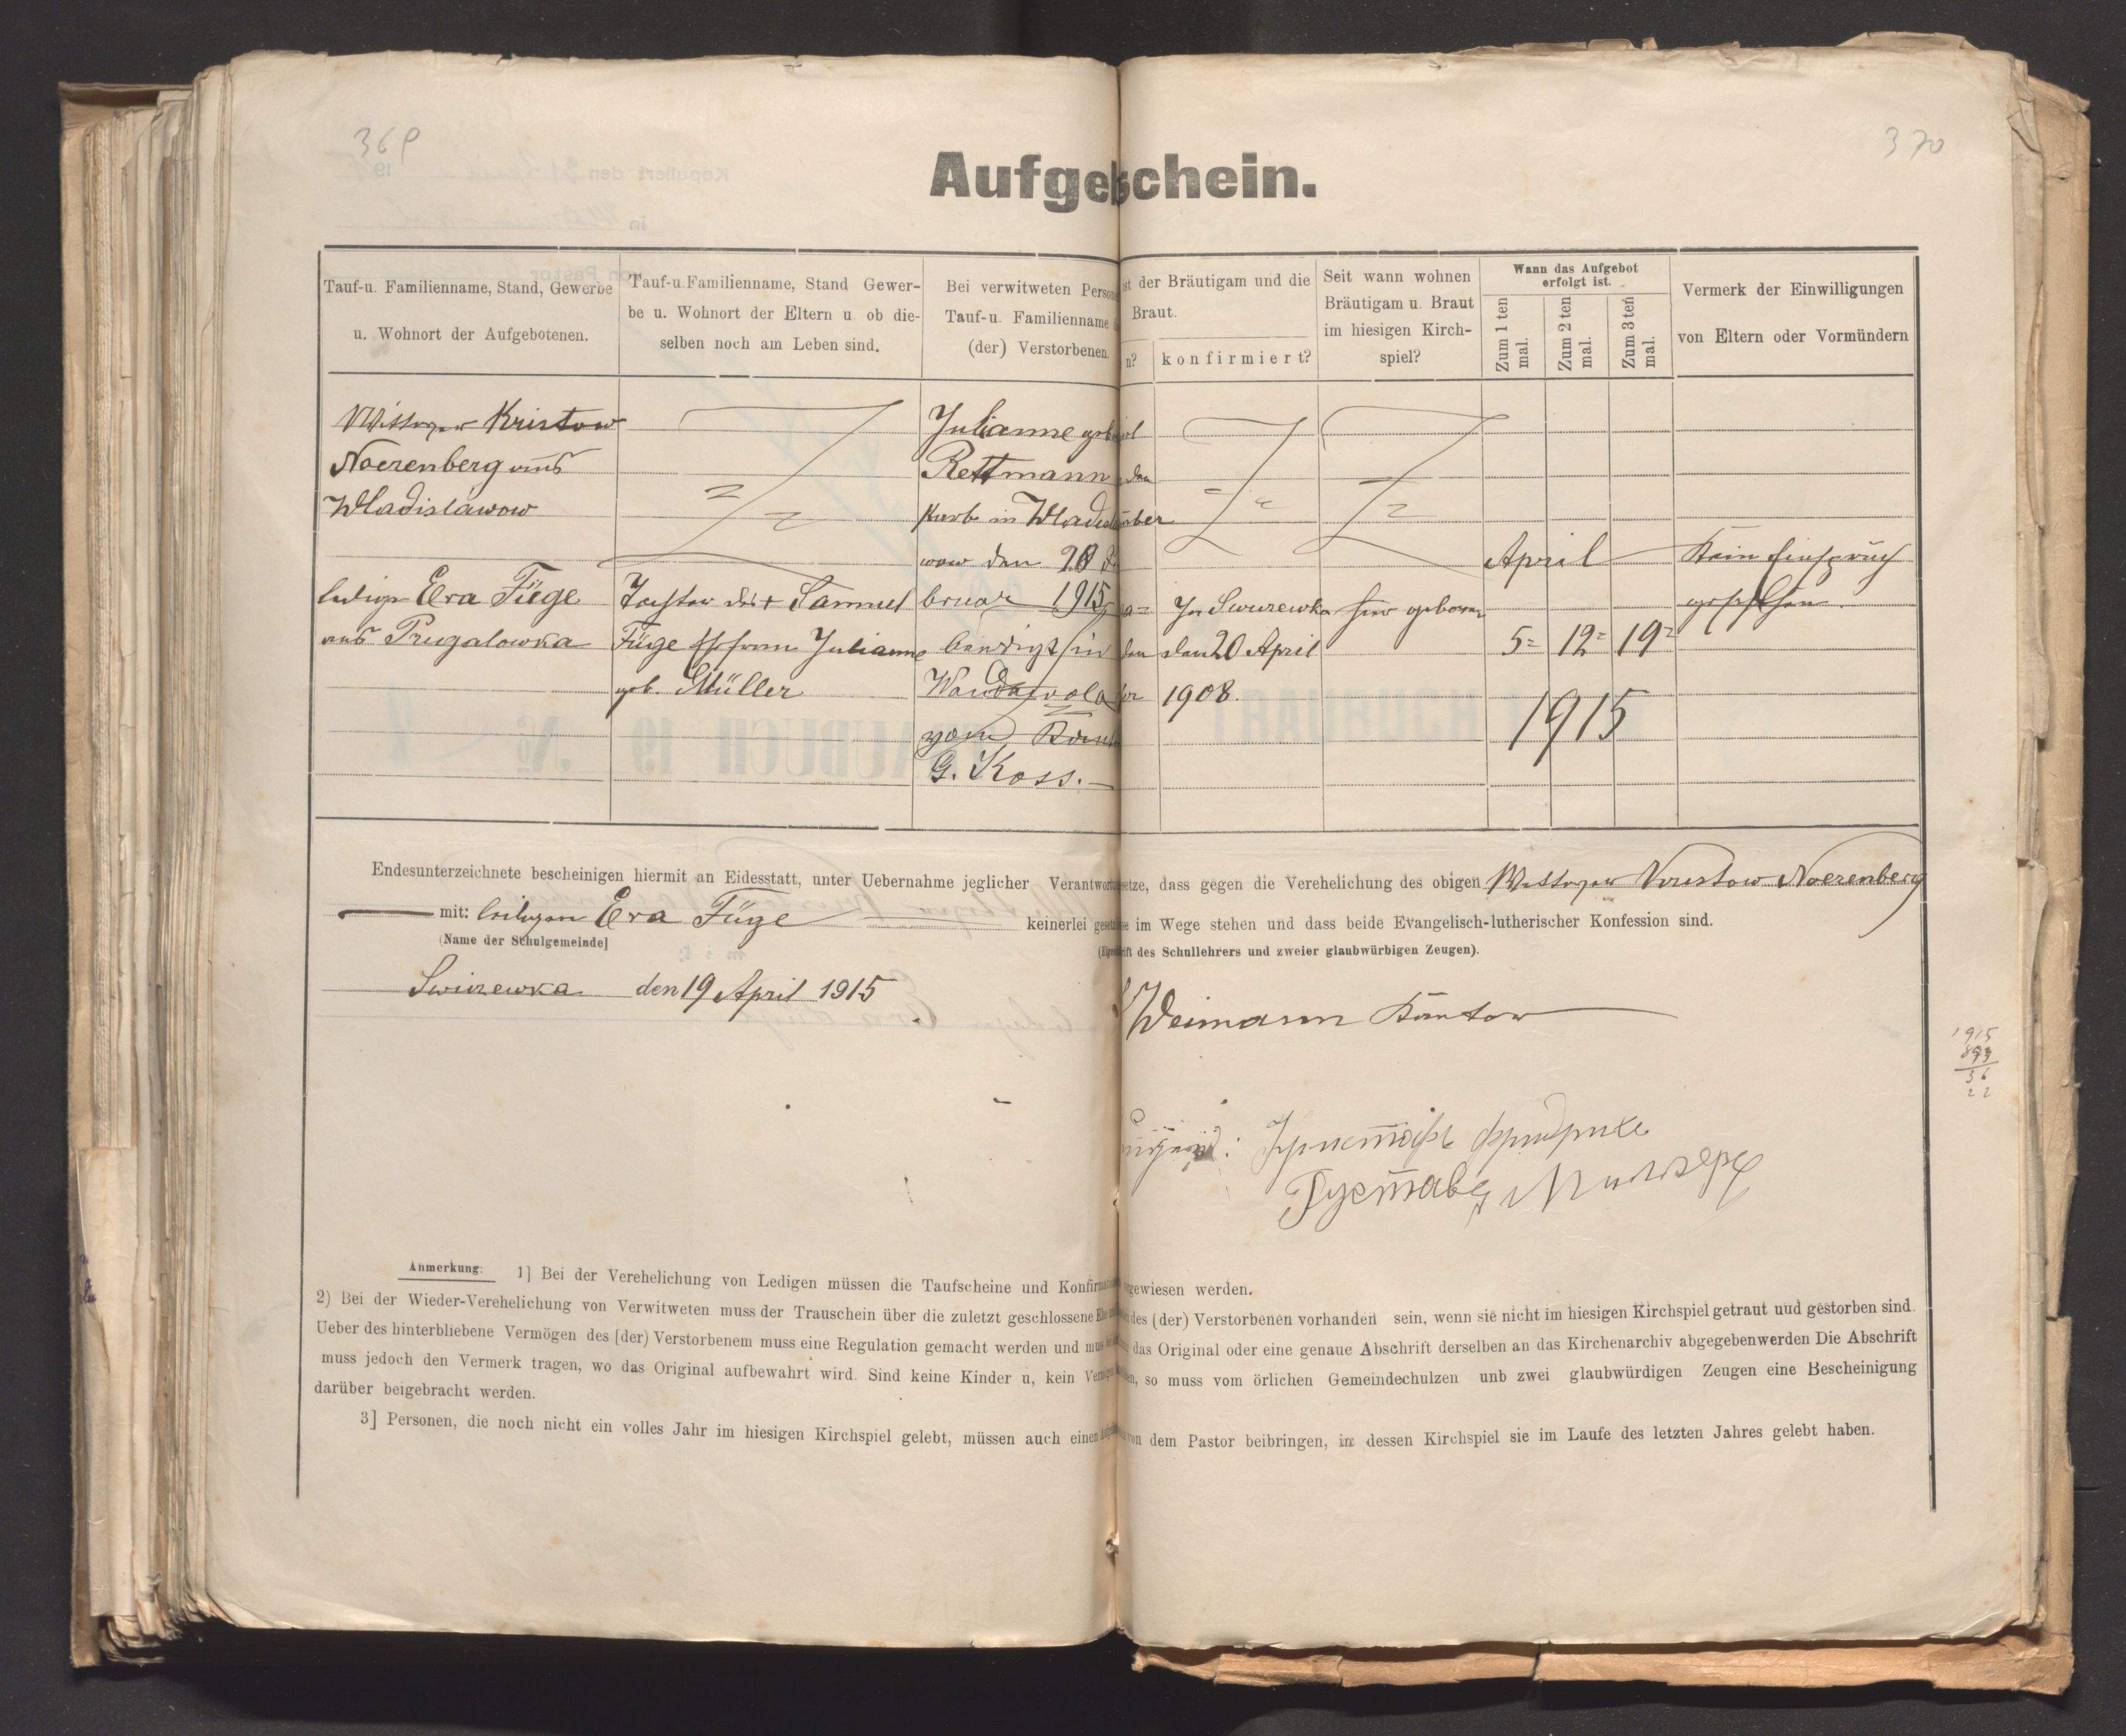 369
370
Aufge schein.
Tauf-u. Familienname, Stand, Gewerbe
u. Wohnort der Aufgebotenen.
Tauf-u. Familienname, Stand Gewer-
be u. Wohnort der Eltern u. ob die-
selben noch am Leben sind.
Bei verwitweten Person
Tauf-u. Familienname d
(der) Verstorbenen.
ist der Bräutigam und die
Braut.
n?
konfirmiert?
Seit wann wohnen
Bräutigam u. Braut
im hiesigen Kirch-
spiel?
Wann das Aufgebot
erfolgt ist.
Zum 1 ten
mal.
Zum 2 ten
mal.
Zum 3 ten
mal.
Vermerk der Einwilligungen
von Eltern oder Vormündern
Wittwer Kristow
Noerenberg aus
Wladislawow
Julianne geb
Rettmann
starb in Wladisla
wow den 28 Fe
bruar 1915
beerdigt in
Wandawola
vom Kant
G. Koss.
den
ledige Eva Füge
aus Prugalowka
Tochter des + Samuel
Füge Julianne
geb. Müller
In Swurewka
den 20 April
1908.
hier geboren
April
5= 12= 19=
1915
Kein Einspruch
geschehen.
Endesunterzeichnete bescheinigen hiermit an Eidesstatt, unter Uebernahme jeglicher Verantwort setze, dass gegen die Verehelichung des obigen Wittwer Kristow Noerenberg
mit: ledigen Eva Füge keinerlei geset se im Wege stehen und dass beide Evangelisch-lutherischer Konfession sind.
(Name der Schulgemeinde]
rift des Schullehrers und zweier glaubwürbigen Zeugen).
Swirewka den 19 April 1915
Weimann Kantor
1915
36
22
Густавъ
Anmerkung: 1] Bei der Verehelichung von Ledigen müssen die Taufscheine und Konfirma rgewiesen werden.
2) Bei der Wieder-Verehelichung von Verwitweten muss der Trauschein über die zuletzt geschlossene Ehe des (der) Verstorbenen vorhanden sein, wenn sie nicht im hiesigen Kirchspiel getraut uud gestorben sind.
Ueber des hinterbliebene Vermögen des [der) Verstorbenem muss eine Regulation gemacht werden und mus das Original oder eine genaue Abschrift derselben an das Kirchenarchiv abgegebenwerden Die Abschrift
muss jedoch den Vermerk tragen, wo das Original aufbewahrt wird. Sind keine Kinder u, kein Vermög en, so muss vom örlichen Gemeindechulzen unb zwei glaubwürdigen Zeugen eine Bescheinigung
darüber beigebracht werden.
3] Personen, die noch nicht ein volles Jahr im hiesigen Kirchspiel gelebt, müssen auch einen von dem Pastor beibringen, in dessen Kirchspiel sie im Laufe des letzten Jahres gelebt haben.